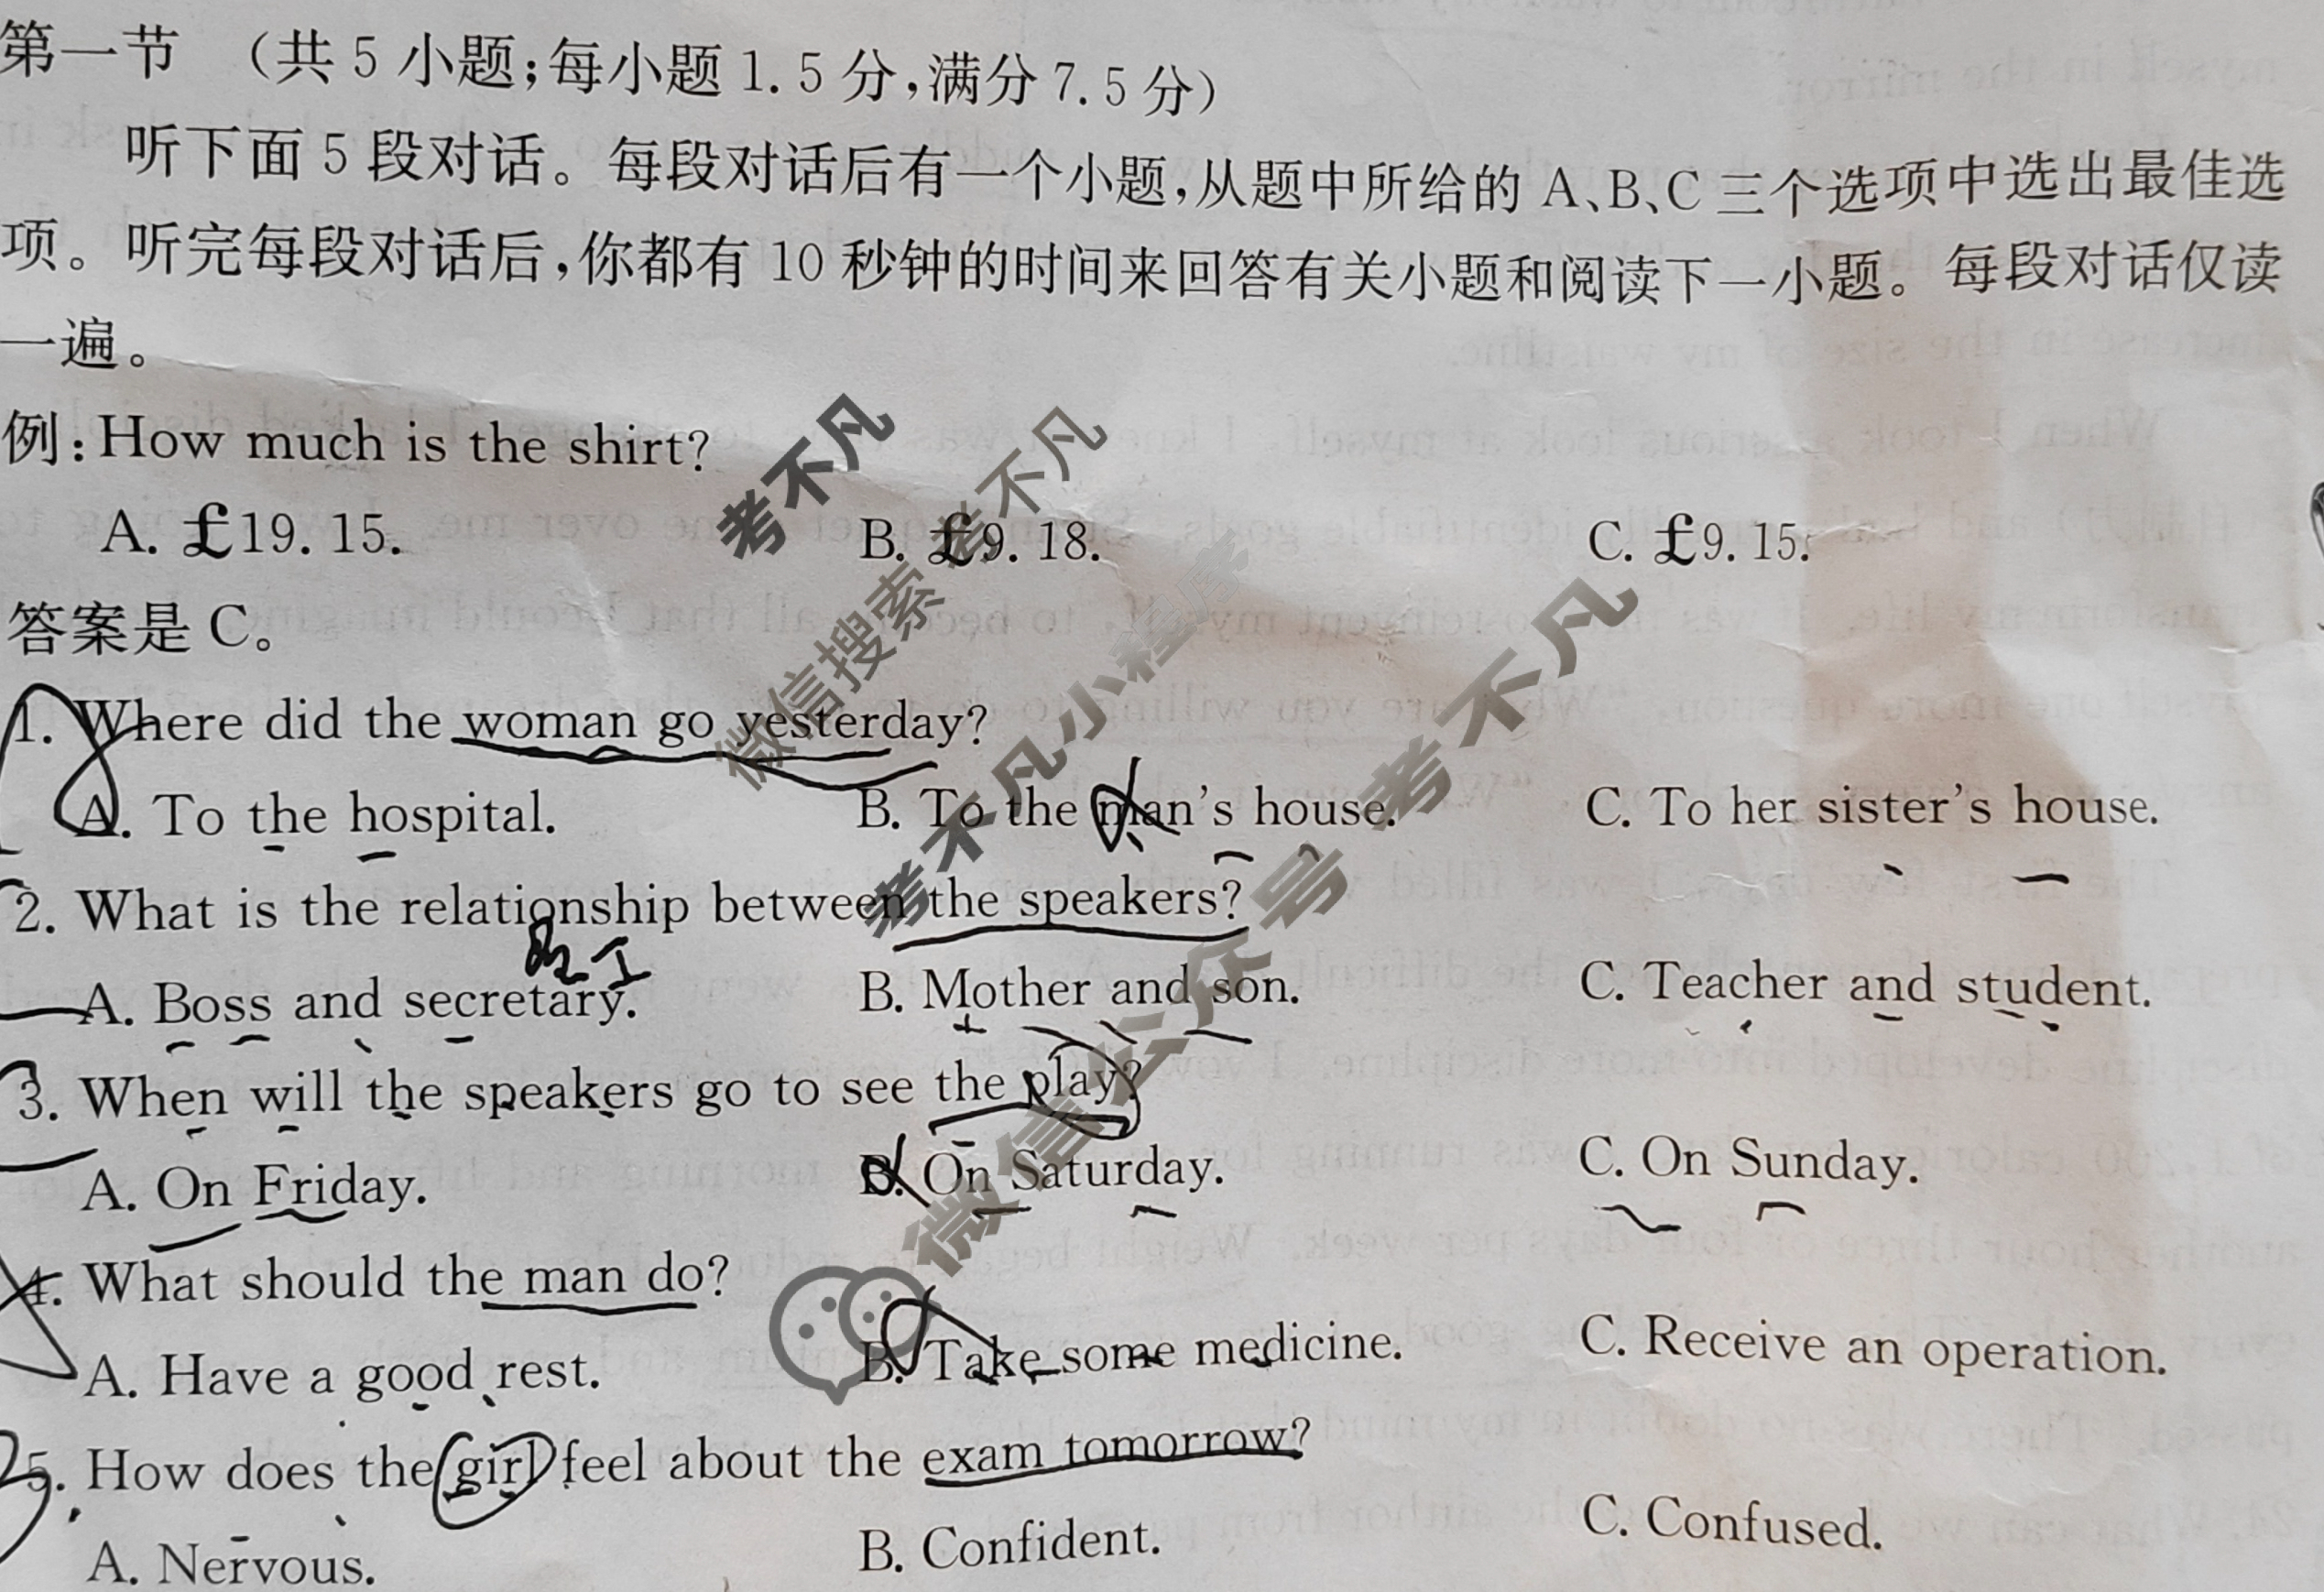 第一节 （共 5 小题;每小题 1.5 分,满分 7.5 分）
听下面 5 段对话。每段对话后有一个小题,从题中所给的 A、B、C 三个选项中选出最佳选
项。听完每段对话后,你都有 10 秒钟的时间来回答有关小题和阅读下一小题。每段对话仅读
一遍。
例:How much is the shirt?
A. £19.15. B. £9.18. C. £9.15.
答案是 C。
1. Where did the woman go yesterday?
A. To the hospital. B. To the man's house. C. To her sister's house.
2. What is the relationship between the speakers?
A. Boss and secretary. B. Mother and son. C. Teacher and student.
3. When will the speakers go to see the play?
A. On Friday. B. On Saturday. C. On Sunday.
4. What should the man do?
A. Have a good rest. B. Take some medicine. C. Receive an operation.
5. How does the girl feel about the exam tomorrow?
A. Nervous. B. Confident. C. Confused.
考不凡
微信搜索 考不凡
考不凡小程序
微信公众号 考不凡